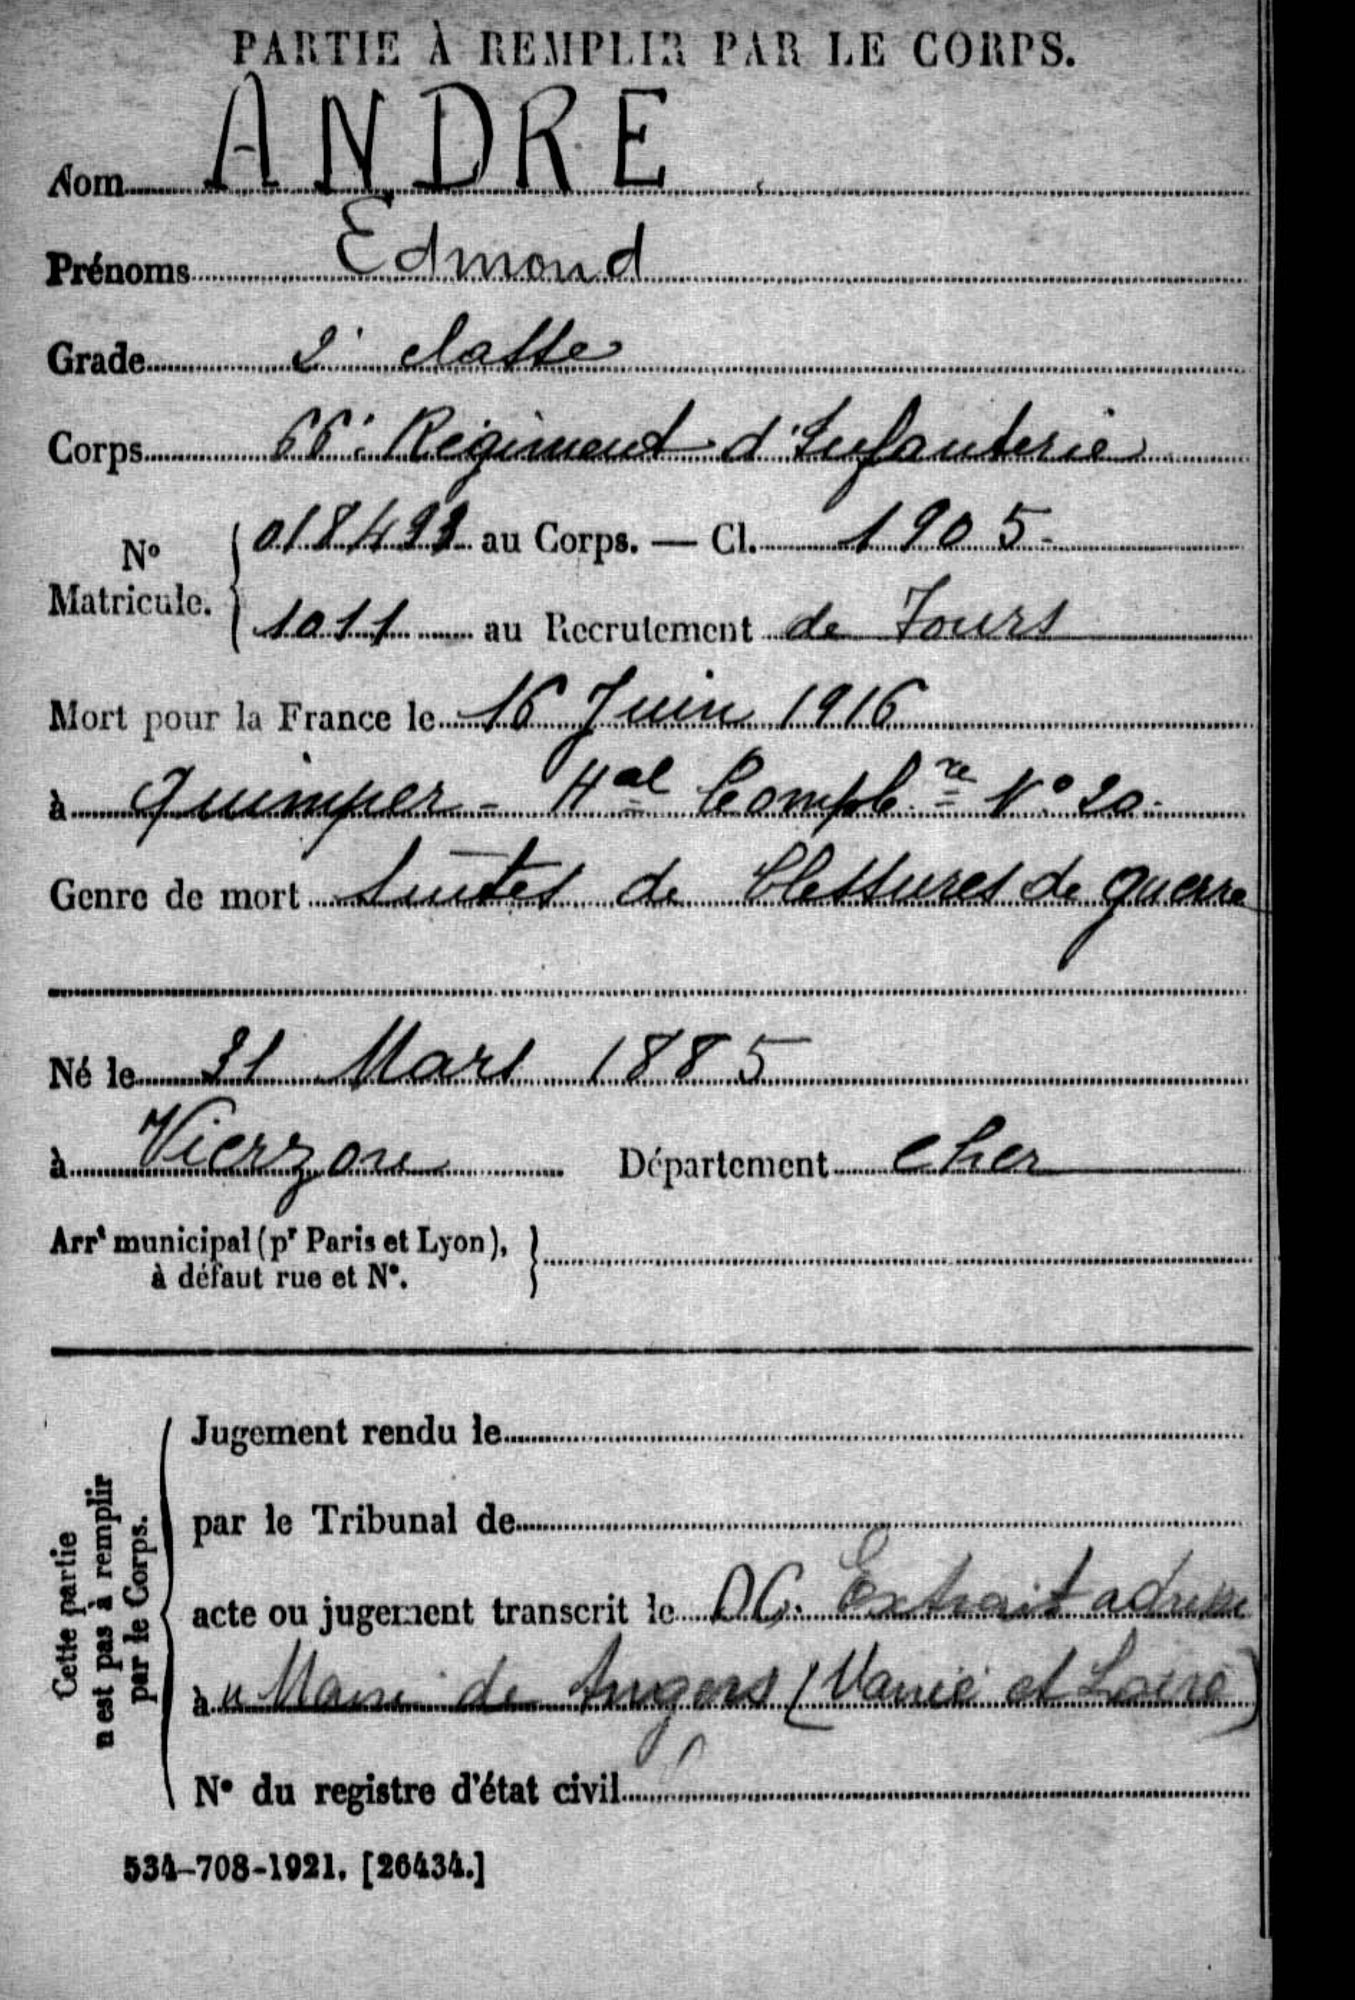 PARTIE À REMPLIR PAR LE CORPS.
Nom ANDRE
Prénoms Edmond
Grade 2e classe
Corps 66e Régiment d'Infanterie
No Matricule. 018493 au Corps. — Cl. 1905-
1011 au Recrutement de Tours
Mort pour la France le 16 Juin 1916
à Quimper - Hal Complre No 20-
Genre de mort Suites de blessures de guerre
Né le 31 Mars 1885
à Vierzon Département Cher
Arrt municipal (pr Paris et Lyon),
à défaut rue et No.
Cette partie
n'est pas à remplir
par le Corps.
Jugement rendu le
par le Tribunal de
acte ou jugement transcrit le DC. Extrait adresse
à Maire de Angers (Maine et Loire)
No du registre d'état civil
534-708-1921. [26434.]